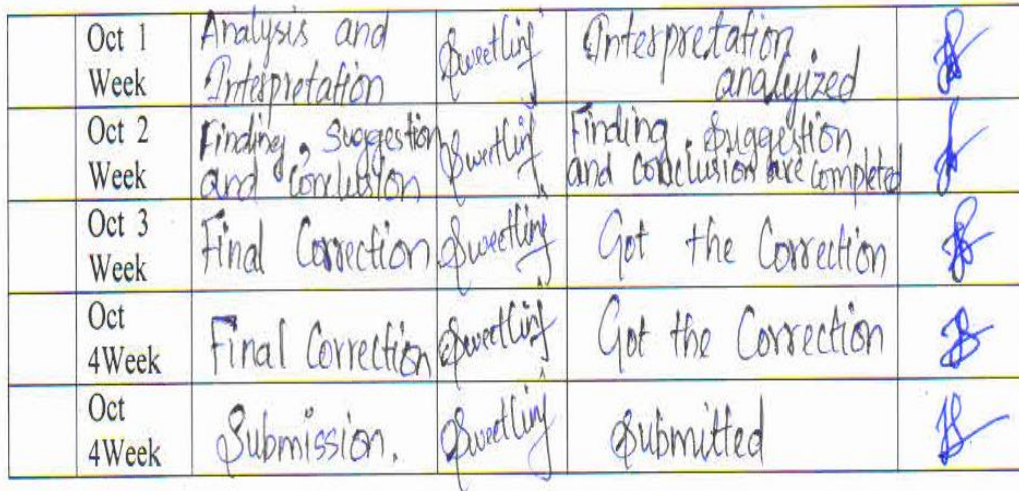 Oct 1 Week Analysis and Interpretation Sweetlinj Interpretation analyized
Oct 2 Week Finding, Suggestion and Conclusion Sweetlinj Finding, Suggestion and conclusion are completed
Oct 3 Week Final Correction Sweetlinj Got the Correction
Oct 4Week Final Correction Sweetlinj Got the Correction
Oct 4Week Submission. Sweetlinj Submitted